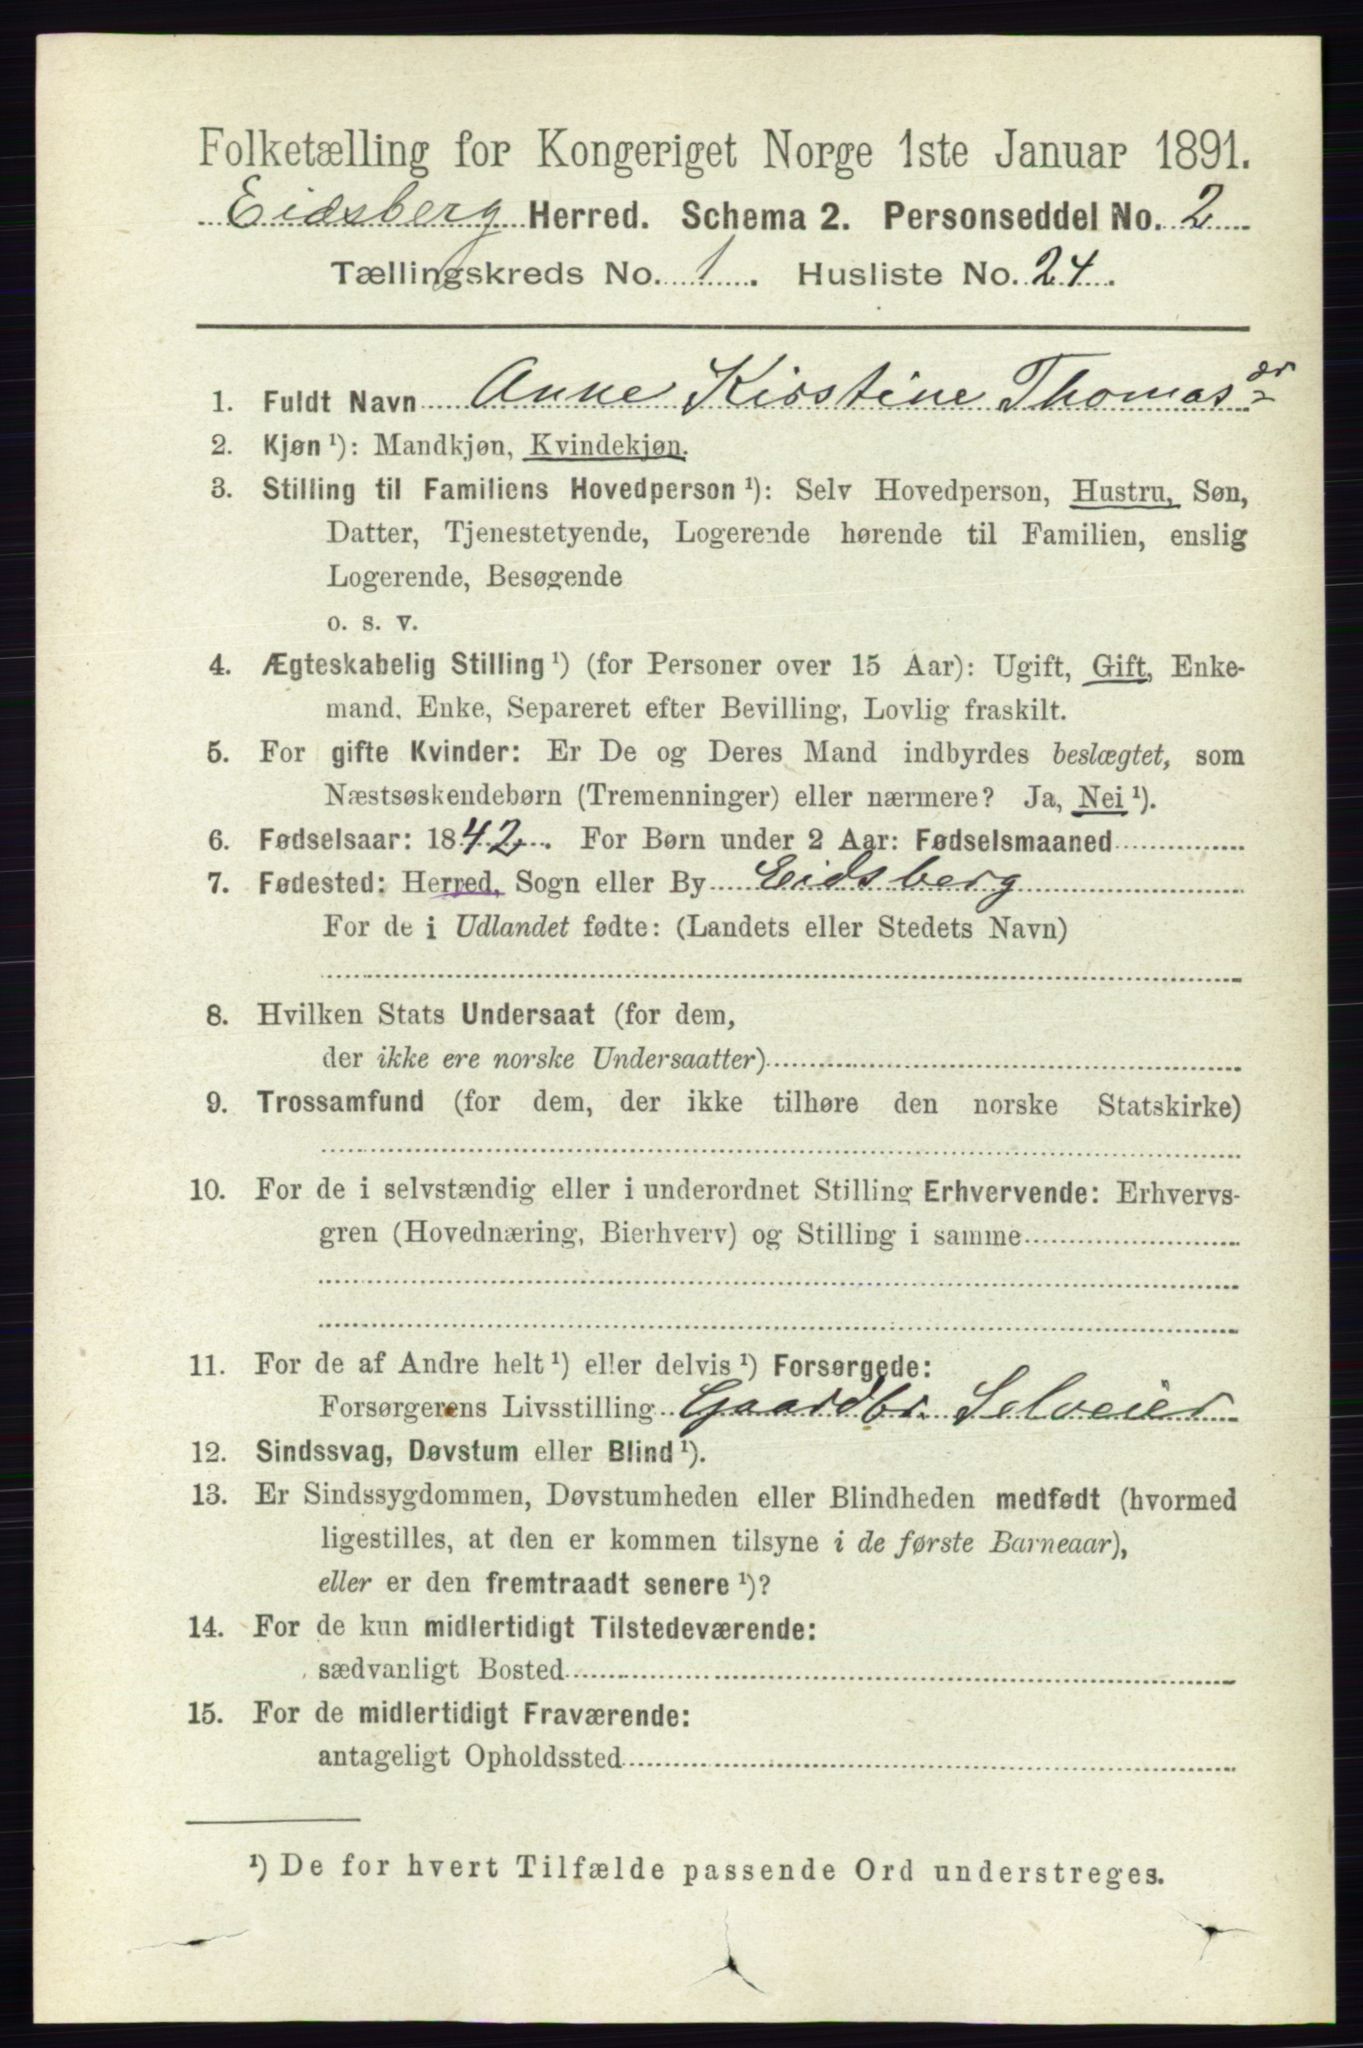 Folketælling for Kongeriget Norge 1ste Januar 1891.
Eidsberg Herred. Schema 2. Personseddel No. 2
Tællingskreds No. 1. Husliste No. 24.
1. Fuldt Navn Anne Kirstine Thomasdr
2. Kjøn ¹): Mandkjøn, Kvindekjøn.
3. Stilling til Familiens Hovedperson ¹): Selv Hovedperson, Hustru, Søn,
Datter, Tjenestetyende, Logerende hørende til Familien, enslig
Logerende, Besøgende
o. s. v.
4. Ægteskabelig Stilling ¹) (for Personer over 15 Aar): Ugift, Gift, Enke-
mand, Enke, Separeret efter Bevilling, Lovlig fraskilt.
5. For gifte Kvinder: Er De og Deres Mand indbyrdes beslægtet, som
Næstsøskendebørn (Tremenninger) eller nærmere? Ja, Nei ¹).
6. Fødselsaar: 1842. For Børn under 2 Aar: Fødselsmaaned
7. Fødested: Herred, Sogn eller By Eidsberg
For de i Udlandet fødte: (Landets eller Stedets Navn)
8. Hvilken Stats Undersaat (for dem,
der ikke ere norske Undersaatter)
9. Trossamfund (for dem, der ikke tilhøre den norske Statskirke)
10. For de i selvstændig eller i underordnet Stilling Erhvervende: Erhvervs-
gren (Hovednæring, Bierhverv) og Stilling i samme
11. For de af Andre helt ¹) eller delvis ¹) Forsørgede:
Forsørgerens Livsstilling Gaardbr. Selveier
12. Sindssvag, Døvstum eller Blind ¹).
13. Er Sindssygdommen, Døvstumheden eller Blindheden medfødt (hvormed
ligestilles, at den er kommen tilsyne i de første Barneaar),
eller er den fremtraadt senere ¹)?
14. For de kun midlertidigt Tilstedeværende:
sædvanligt Bosted
15. For de midlertidigt Fraværende:
antageligt Opholdssted
¹) De for hvert Tilfælde passende Ord understreges.